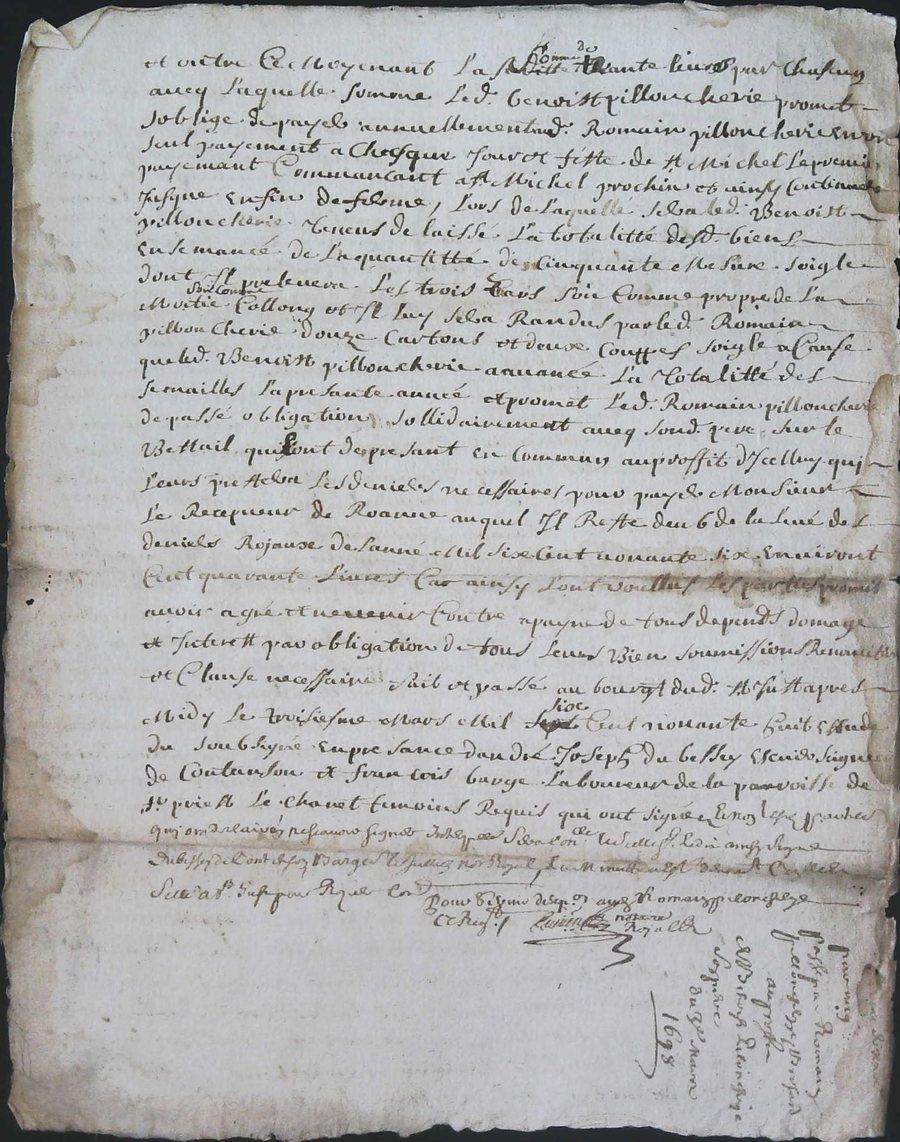 et outre Et Moyenant La somme de huitte tante livres par Chascun
aucq Laquelle somme Led. benoist pilloncherie promet
soblige de payer annuellement aud. Romain pilloncherie en un
seul payement a Chesque Jour et fette de st Michel Le premier
payement Commancant a st Michel prochin et ainsy Continuer
Jusque en fin de ferme, Lors de Laquelle sera led. Benoist
pilloncherie tenus de laisse La totalitté desd. biens
Ensemancé de La quantitte de Cinquante Mesure soigle
dont Il prelevera Les trois Cars son Comme propre de La
Moitié son Comme Collong et Il luy sera Randus par led. Romain
pilloncherie douze Cartons et deux Couppes soigle a Cause
que led. Benoist pilloncherie a avancé La Totalitté des
semailles La presante année et promet Led. Romain pilloncherie
de passé obligation sollidairement aucq sond. pere sur le
Bettail quil ont de presant en Commun au proffit d'Icelluy qui
Leurs prettera Les deniers necessaires pour payer Monsieur
Le Recepveur de Roanne auquel Il Reste deub de la Livé des
deniers Rojaux de Lanné Mil six Cent nonante six environt
Cent quarante Livres Car ainsy Lont voullus Les parties promis
avoir agré et ne venir Contre a payne de tous depends domage
et Interest par obligation de tous Leurs Bien soumissions Renonciation
et Clause necessaire fait et passé au bourgt dud. st Just apres
Midy Le troisiesme Mars Mil six Cent nonante huit Estude
du soubsigné en presance dandré Joseph du bessey escuier signeur
de Contanson et francois barge Laboureur de la parroisse de
st priest Le Chanet temoins Requis qui ont signé et non les parties
qui ont declairés ne scavoir signer
dubessey de Contenson Barge
Romain pilloncherie
notaire
Rojal
par moy
Romain
au proffit
de Benoist pilloncherie
son pere
du 3e Mars
1698